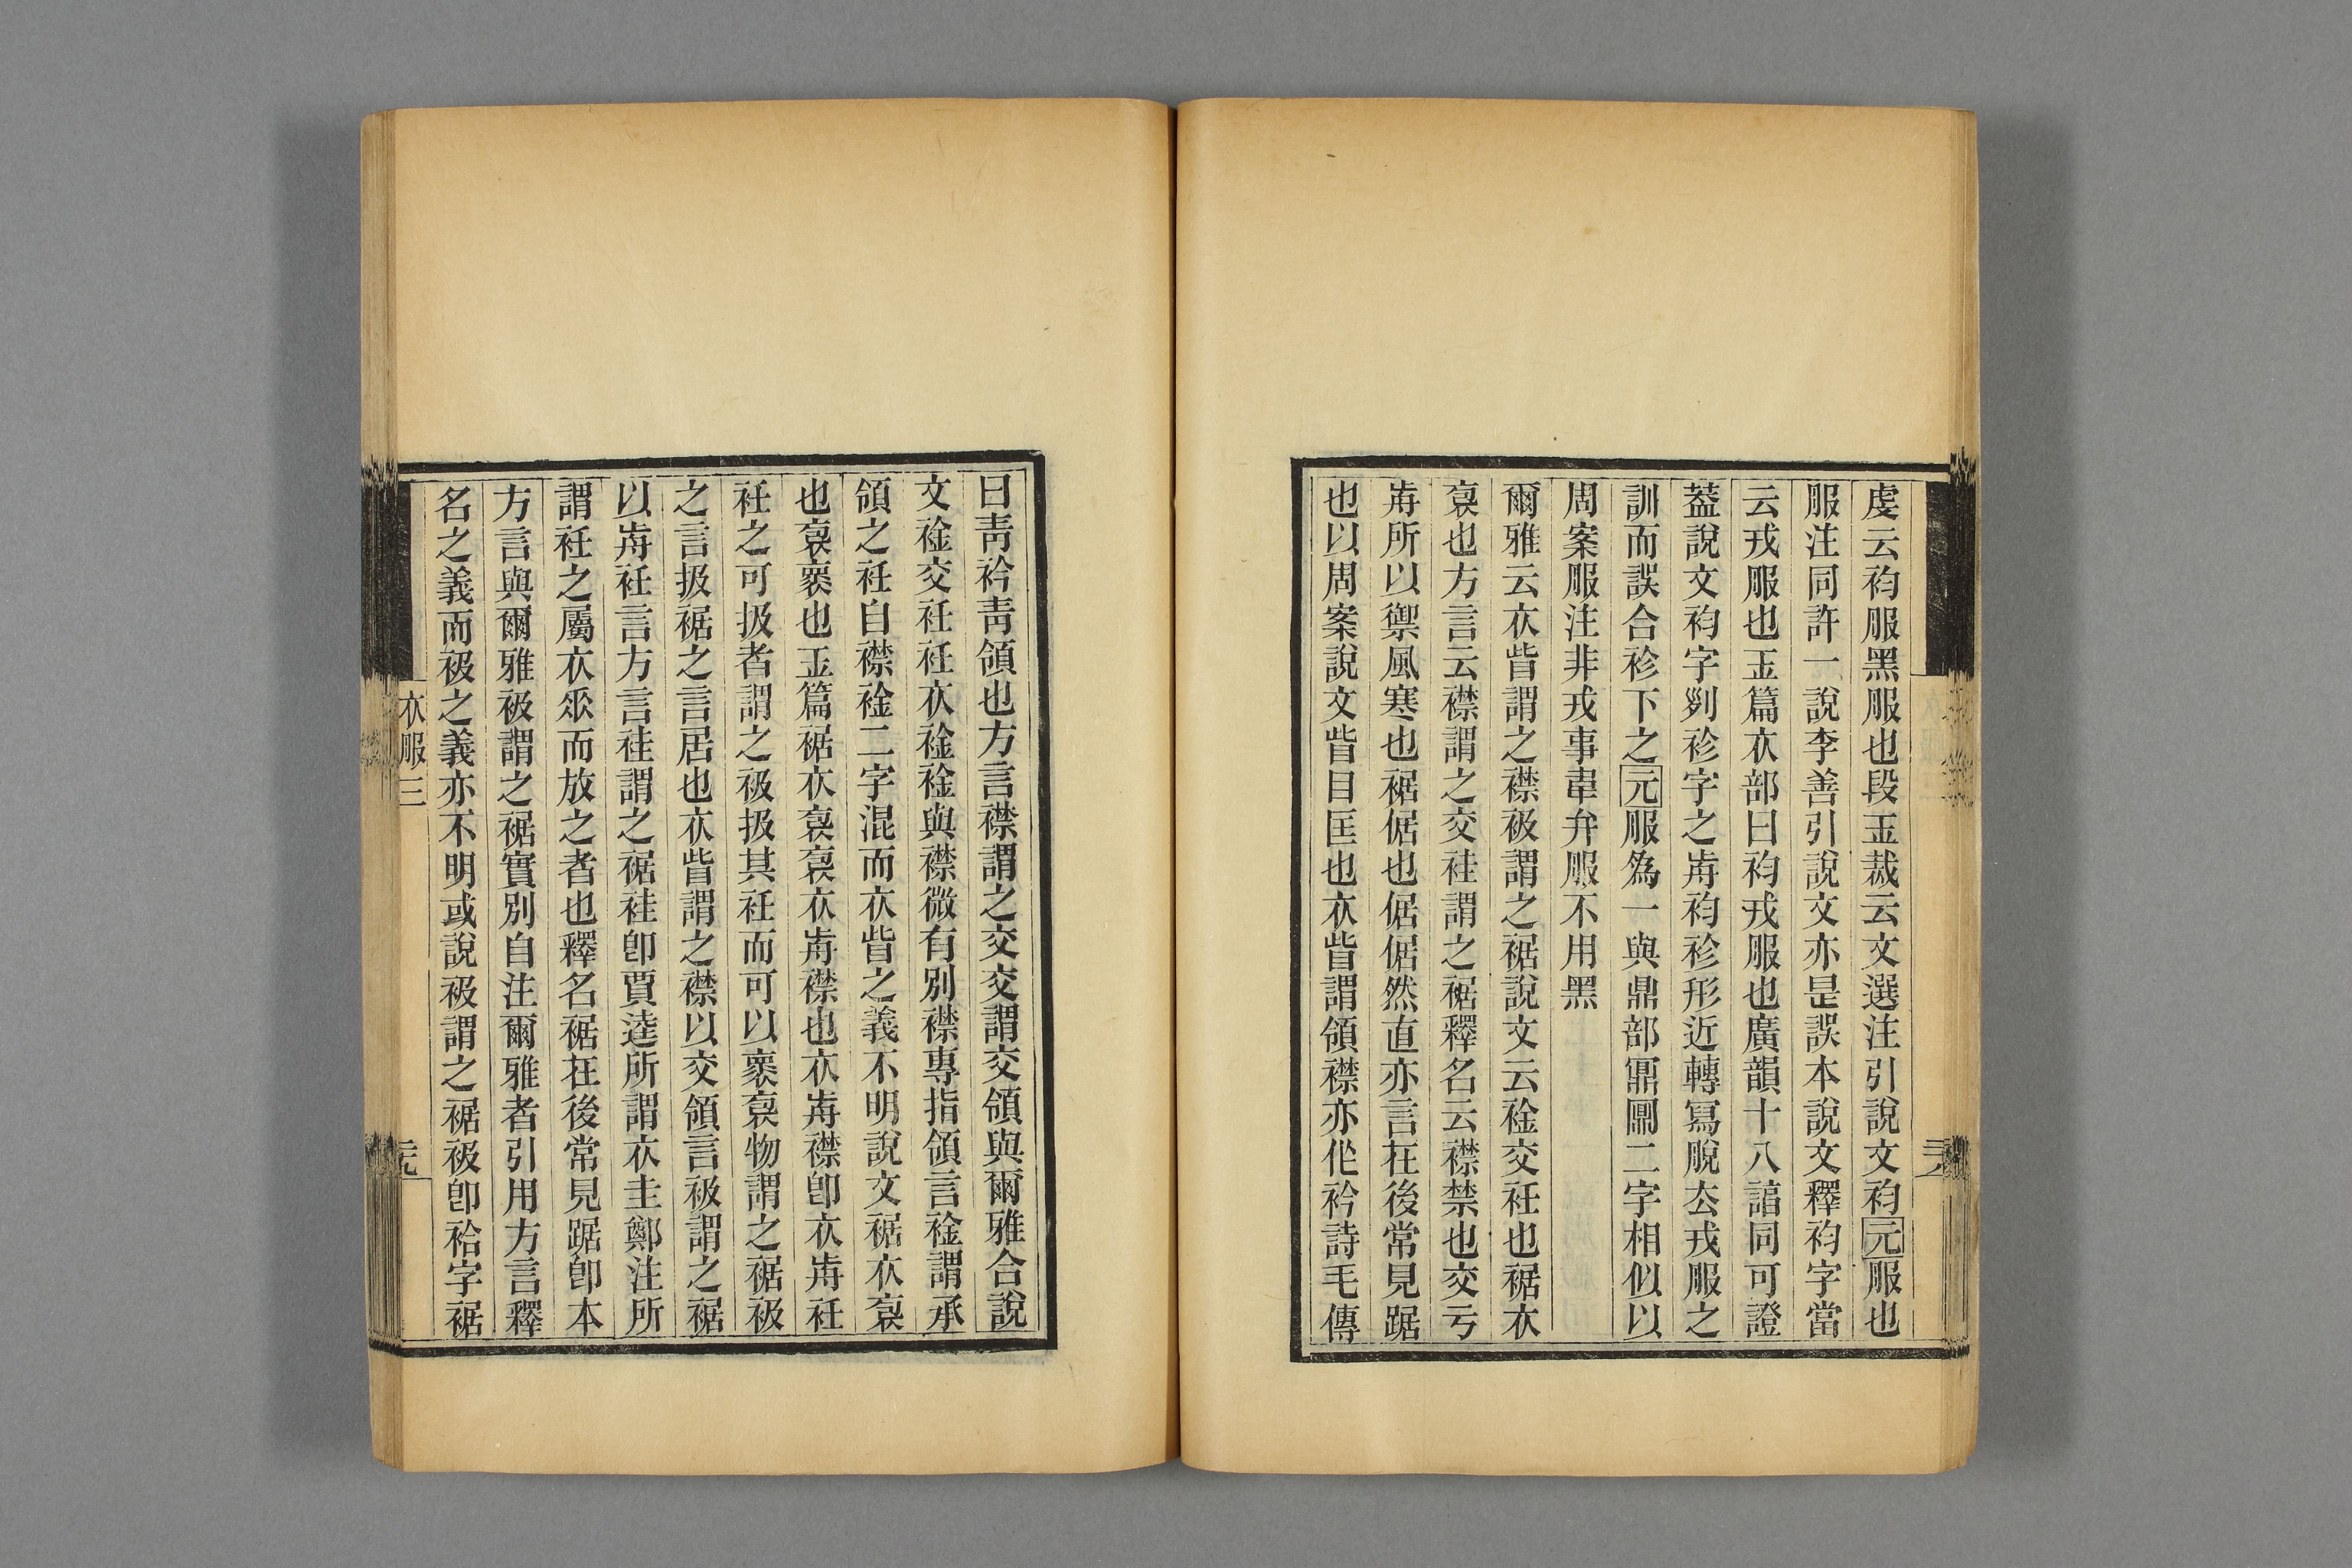 虔云袀服黑服也段玉裁云文選注引說文袀元服也
服注同許一說李善引說文亦是誤本說文釋袀字當
云戎服也玉篇衣部曰袀戎服也廣韻十八諄同可證
葢說文袀字剡袗字之歬袀袗形近轉寫脫去戎服之
訓而誤合袗下之元服爲一與鼎部鼏鼏二字相似以
周案服注非戎事韋弁服不用黑
爾雅云衣眥謂之襟衱謂之裾說文云䘳交衽也裾衣
袌也方言云襟謂之交袿謂之裾釋名云襟禁也交亏
歬所以禦風寒也裾倨也倨倨然直亦言在後常見踞
也以周案說文眥目匡也衣眥謂領襟亦作衿詩毛傳
曰靑衿靑領也方言襟謂之交交謂交領與爾雅合說
文䘳交衽衽衣䘳䘳與襟微有別襟專指領言䘳謂承
領之衽自襟䘳二字混而衣眥之義不明說文裾衣袌
也袌褱也玉篇裾衣袌袌衣歬襟也衣歬襟卽衣歬衽
衽之可扱者謂之衱扱其衽而可以褱袌物謂之裾衱
之言扱裾之言居也衣眥謂之襟以交領言衱謂之裾
以歬衽言方言袿謂之裾袿卽賈逵所謂衣圭鄭注所
謂衽之屬衣眾而放之者也釋名裾在後常見踞卽本
方言與爾雅衱謂之裾實別自注爾雅者引用方言釋
名之義而衱之義亦不明或說衱謂之裾衱卽袷字裾
衣服三